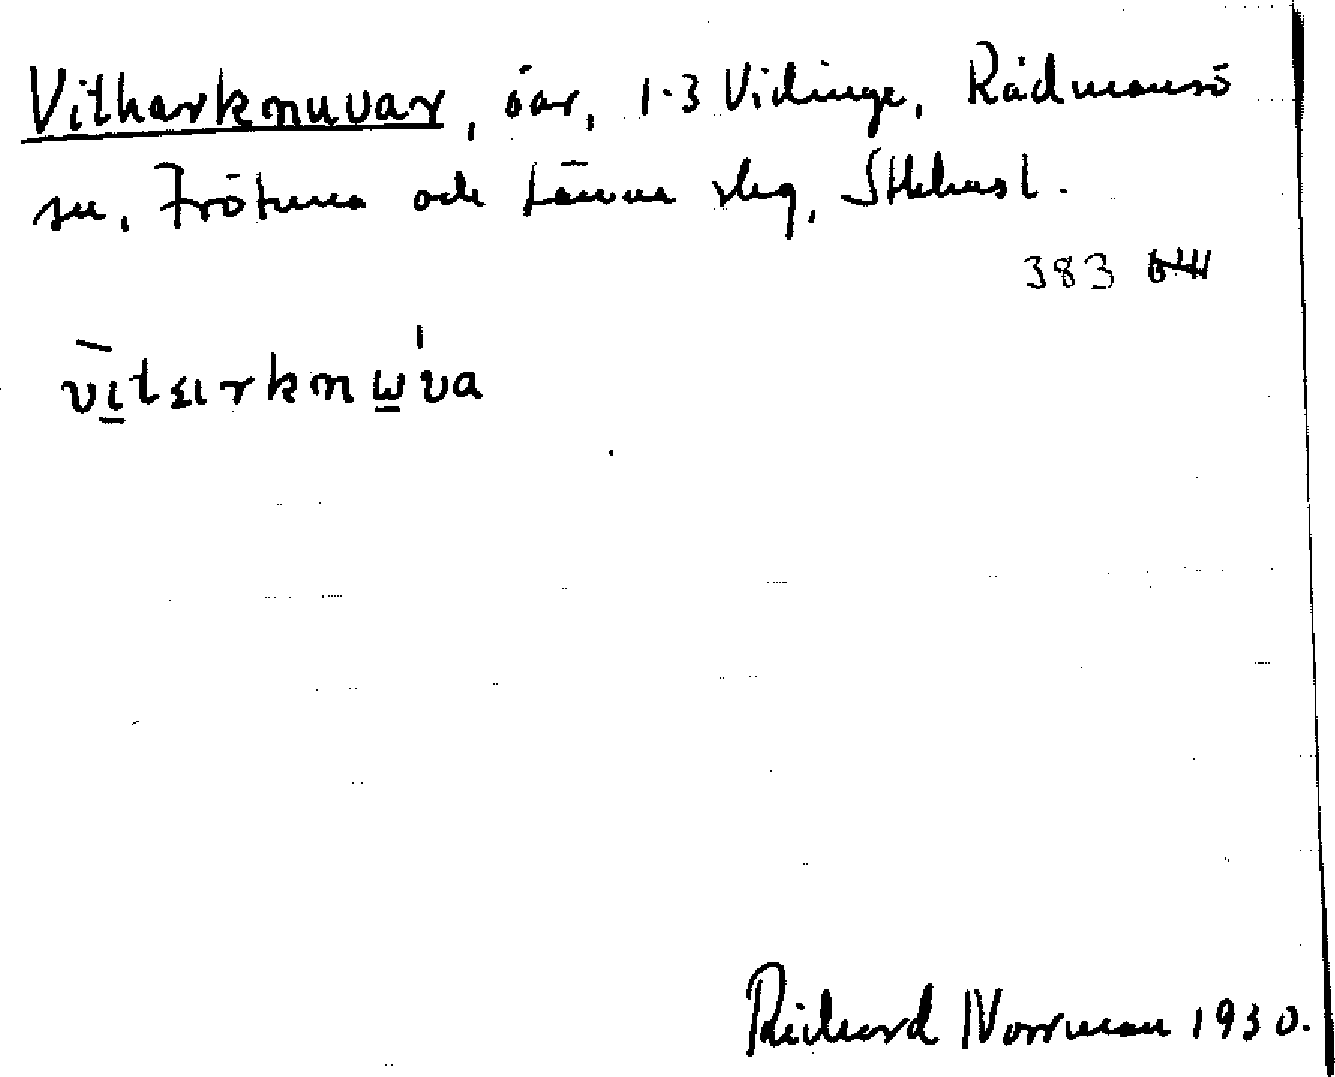 Vitharknuvar, öar, 1-3 Vidinge, Rådmansö
sn, Frötuna och Länna slg, Sthlms l.
383
Richard Norrman 1930.